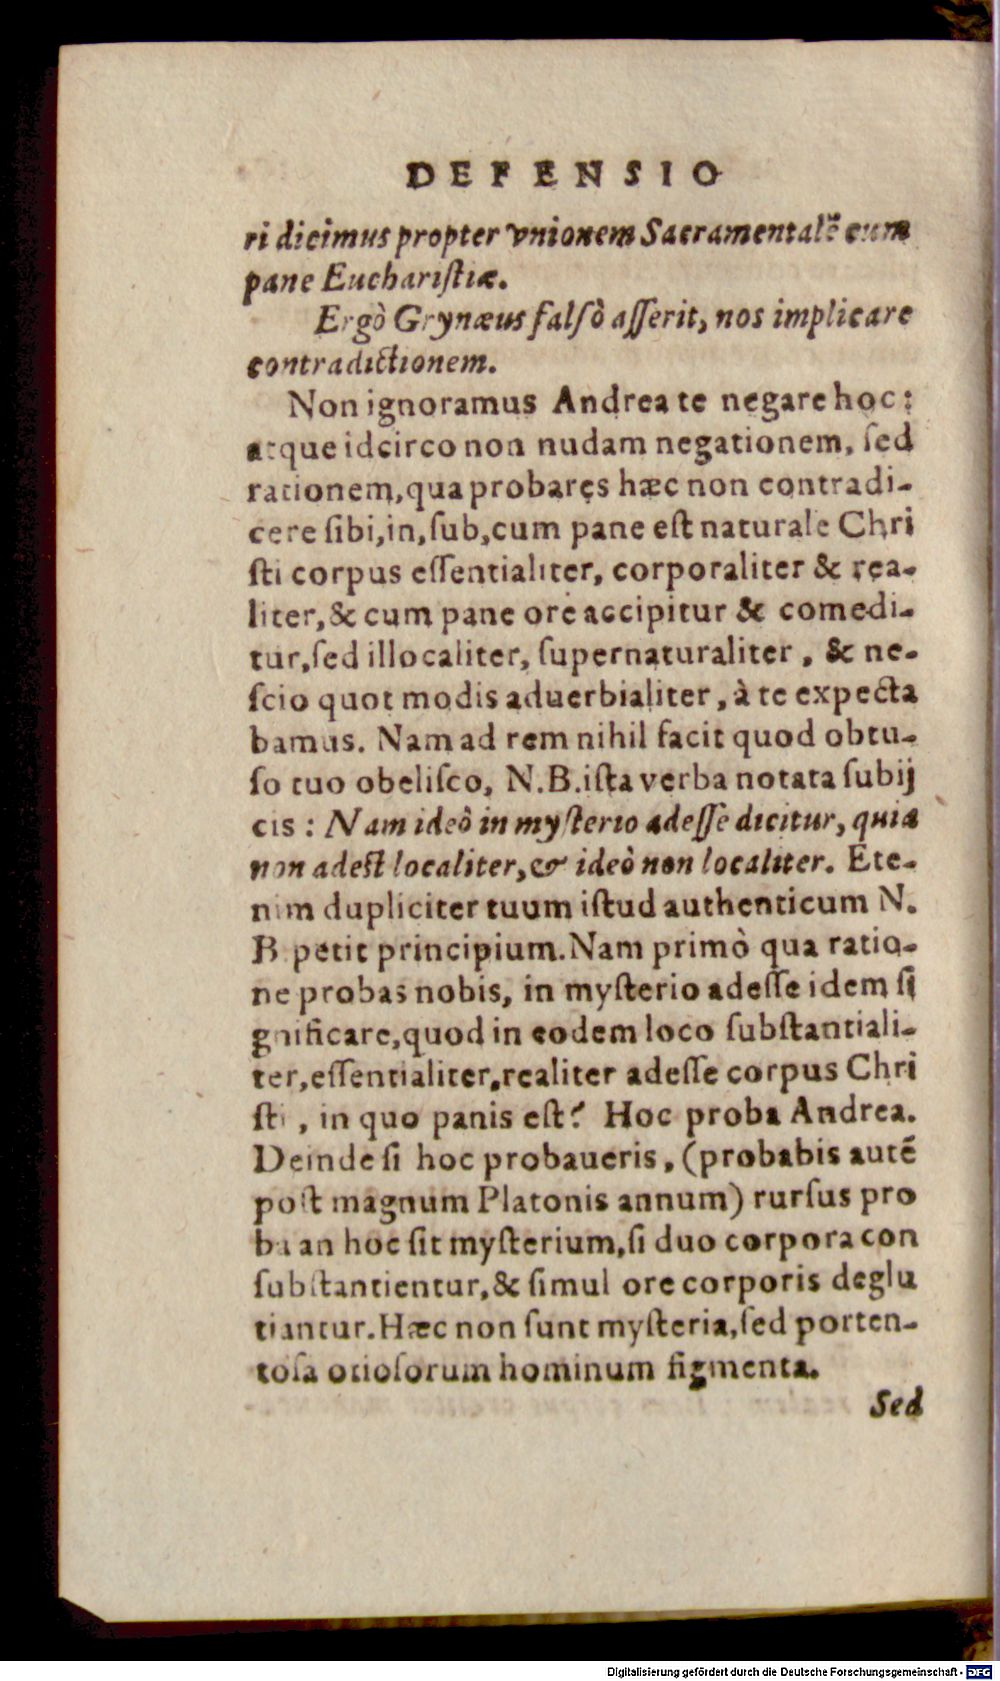 DEFENSIO
ri dicimus propter vnionem Sacramentalẽ cum
pane Euchariſtiæ.
Ergò Grynæus falſò aſſerit, nos implicare
contradictionem.
Non ignoramus Andrea te negare hoc:
atque idcirco non nudam negationem, ſed
rationem, qua probares hæc non contradi-
cere ſibi, in, ſub, cum pane eſt naturale Chri
ſti corpus eſſentialiter, corporaliter & rea-
liter, & cum pane ore accipitur & comedi-
tur, ſed illocaliter, ſupernaturaliter, & ne-
ſcio quot modis aduerbialiter, à te expecta
bamus. Nam ad rem nihil facit quod obtu-
ſo tuo obeliſco, N.B. iſta verba notata ſubij
cis: Nam ideò in myſterio adeſſe dicitur, quia
non adeſt localiter, & ideò non localiter. Ete-
nim dupliciter tuum iſtud authenticum N.
B petit principium. Nam primò qua ratio-
ne probas nobis, in myſterio adeſſe idem ſi
gnificare, quod in eodem loco ſubſtantiali-
ter, eſſentialiter, realiter adeſſe corpus Chri
ſti, in quo panis eſt? Hoc proba Andrea.
Deinde ſi hoc probaueris, (probabis autẽ
poſt magnum Platonis annum) rurſus pro
ba an hoc ſit myſterium, ſi duo corpora con
ſubſtantientur, & ſimul ore corporis deglu
tiantur. Hæc non ſunt myſteria, ſed porten-
toſa otioſorum hominum figmenta.
Sed
Digitalisierung gefördert durch die Deutsche Forschungsgemeinschaft - DFG